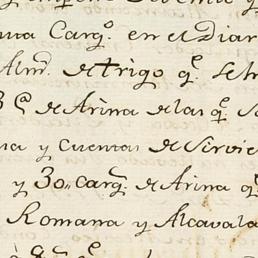 nua Carg.º en el Diar
Alm.d de trigo q.e se h
3 @ de Arina de las q.e S
na y Cuentas de Sirvie
y 30,, carg.s de Arina q.e
Romana y Alcavala